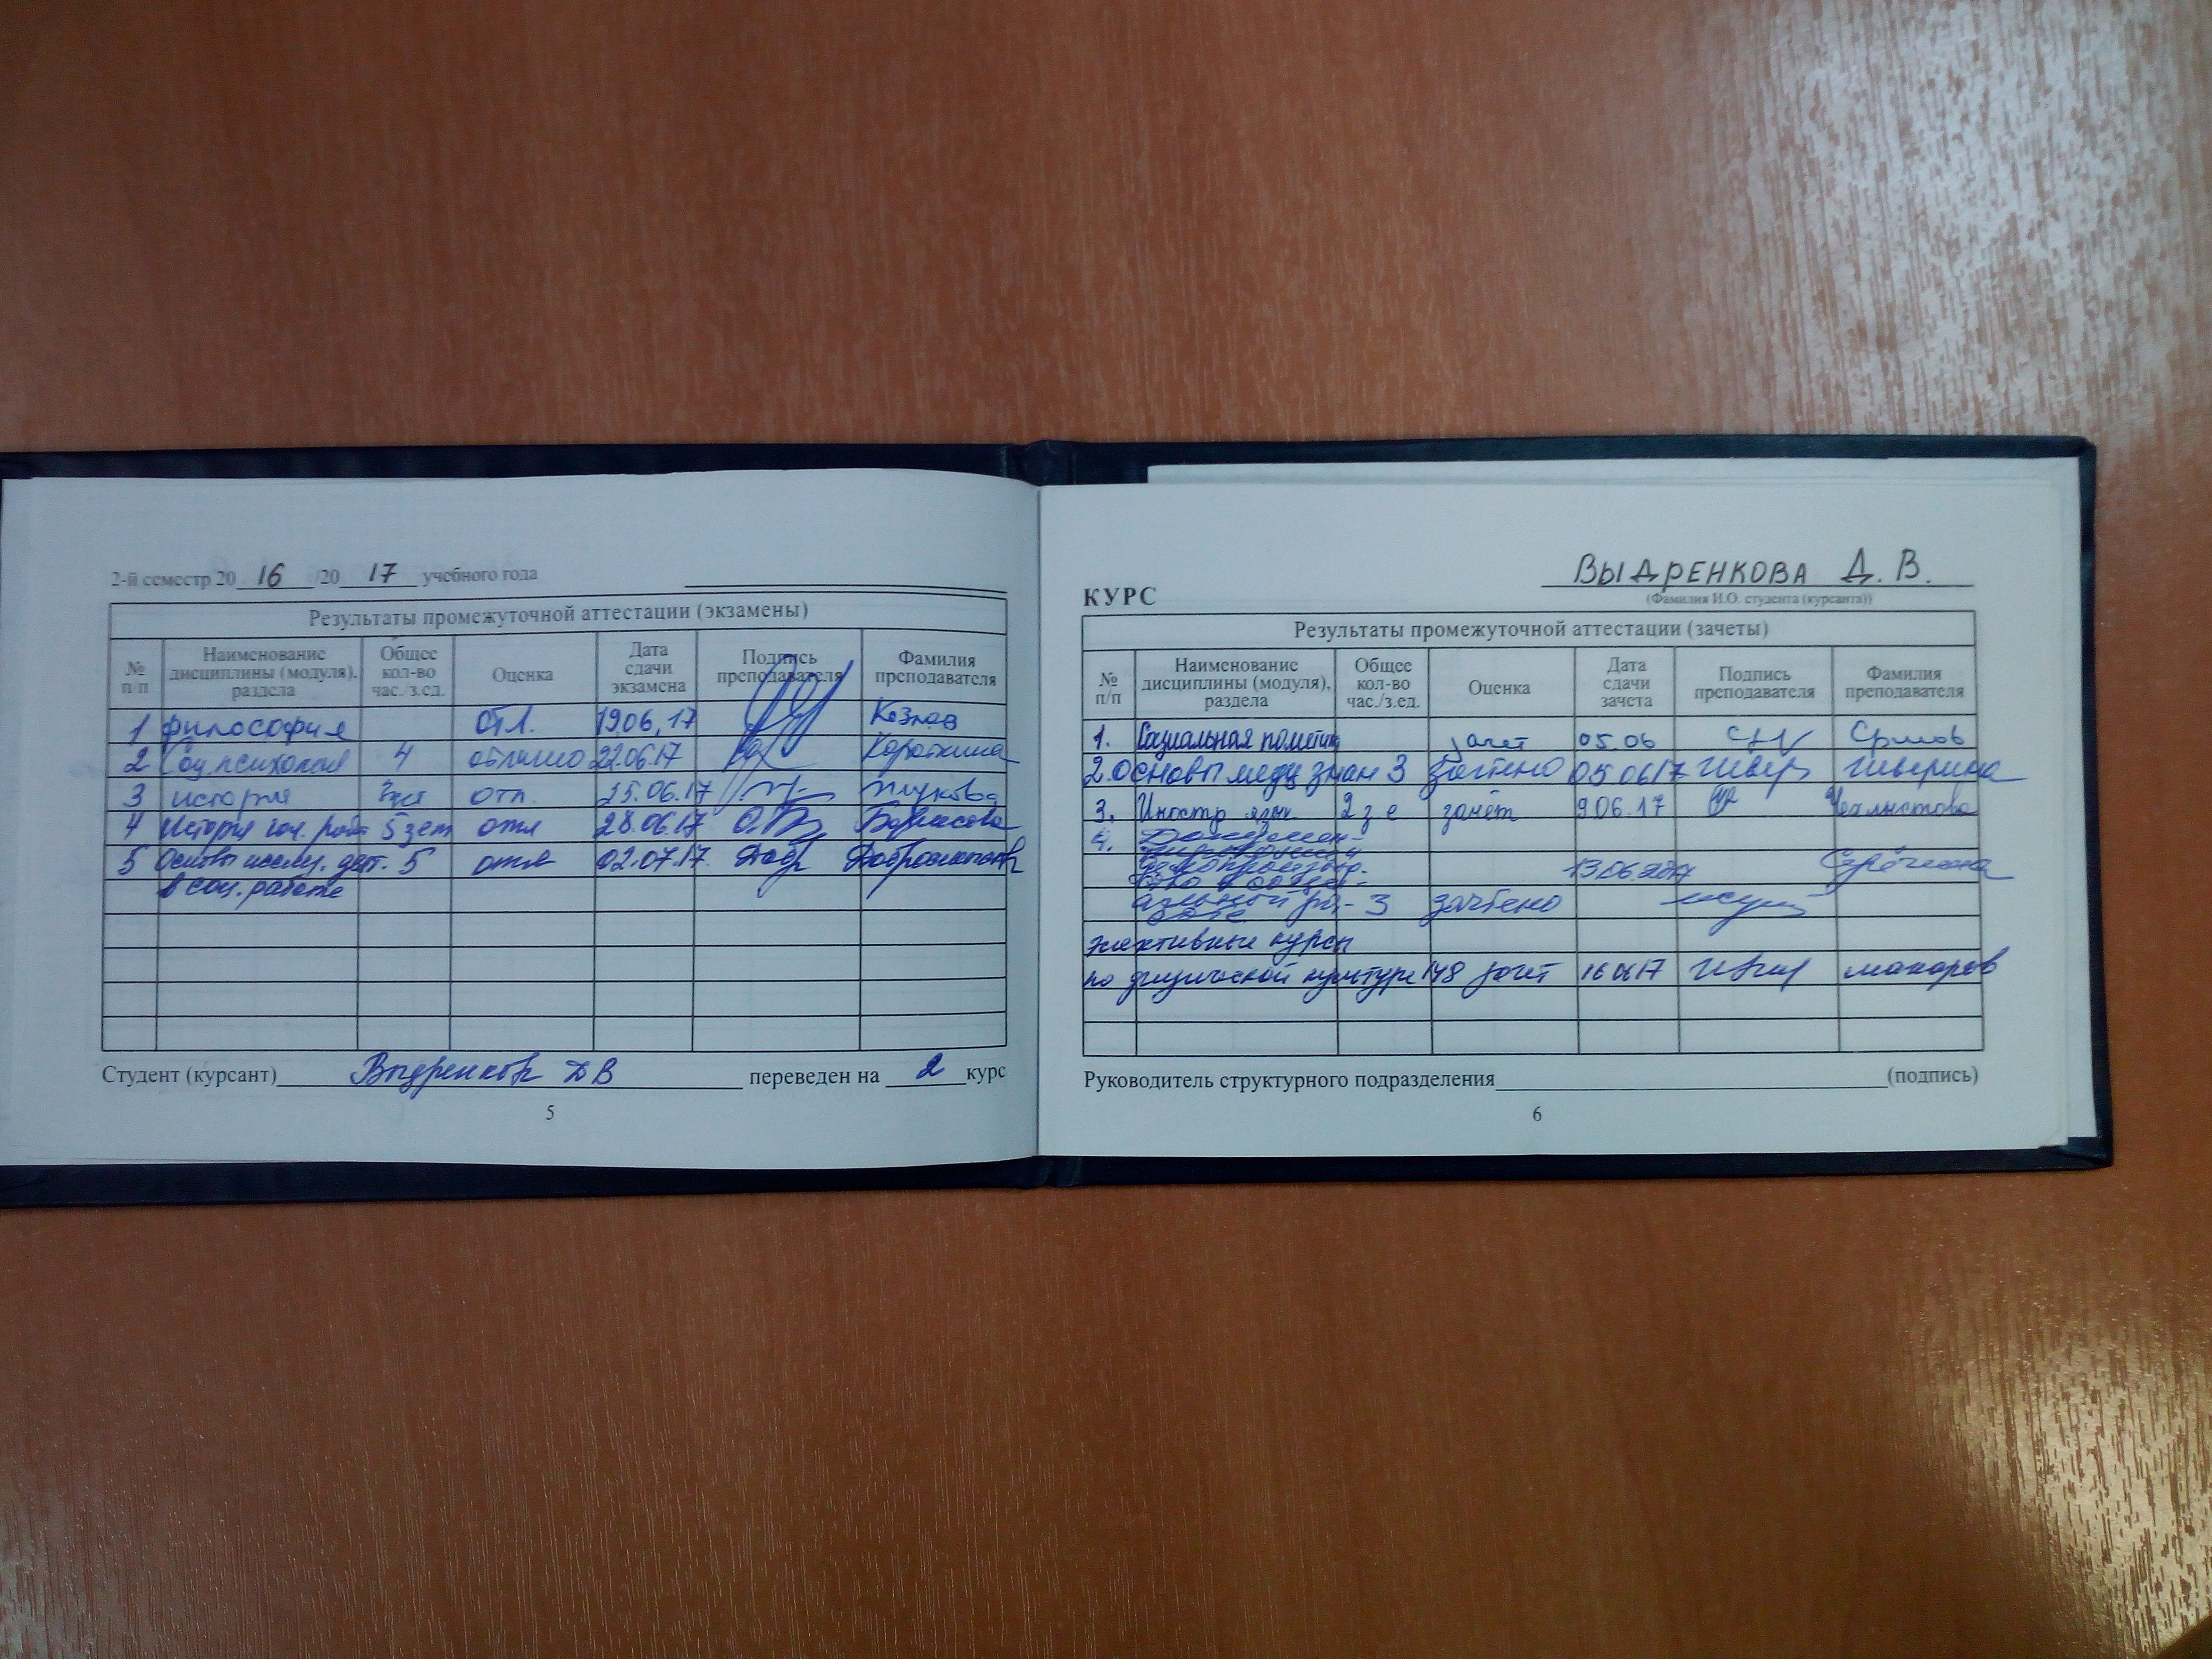 2-й семестр 20 16 /20 17 учебного года
Результаты промежуточной аттестации (экзамены)
№ п/п Наименование дисциплины (модуля), раздела Общее кол-во час./з.ед. Оценка Дата сдачи экзамена Подпись преподавателя Фамилия преподавателя
1 Философия Отл. 19.06.17 Козлов
2 Соц. психология 4 отлично 22.06.17 Короткина
3 история отл. 25.06.17
4 История соц. раб. 5 зет отл 28.06.17 Борисова
5 Основы исслед. деят. 5 отл 02.07.17
в соц. работе
Студент (курсант) Выдренкова ДВ переведен на 2 курс
5
ВЫДРЕНКОВА Д. В.
КУРС (Фамилия И.О. студента (курсанта))
Результаты промежуточной аттестации (зачеты)
№ п/п Наименование дисциплины (модуля), раздела Общее кол-во час./з.ед. Оценка Дата сдачи зачета Подпись преподавателя Фамилия преподавателя
1. Социальная политика зачет 05.06
2. Основы мед. знан 3 Зачтено 05.06.17 Чиверина
3. Иностр язык 2 з е зачёт 9.06.17
4.
13.06.2017
3 зачтено
элективные курсы
по физической культуре 148 зачет 16.06.17 Макаров
Руководитель структурного подразделения (подпись)
6